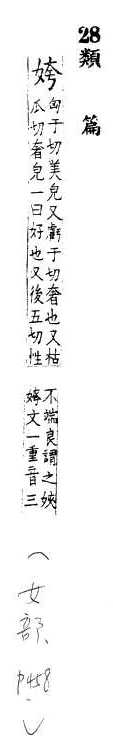 28類
篇
姱
匈于切美皃又虧于切奢也又枯
瓜切奢皃一曰好也又後五切性
不端良謂之姱
婞文一重音三
(女部、p458)